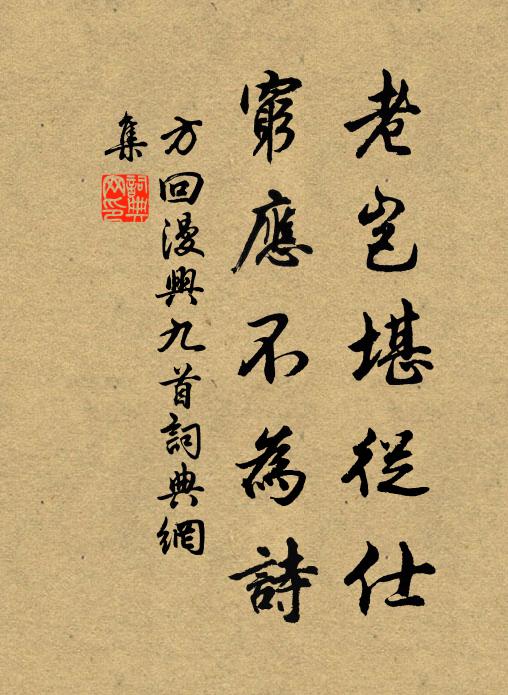 老岂堪從仕
窮應不為詩
方回漫興九首詞典網
集
詞典
网印